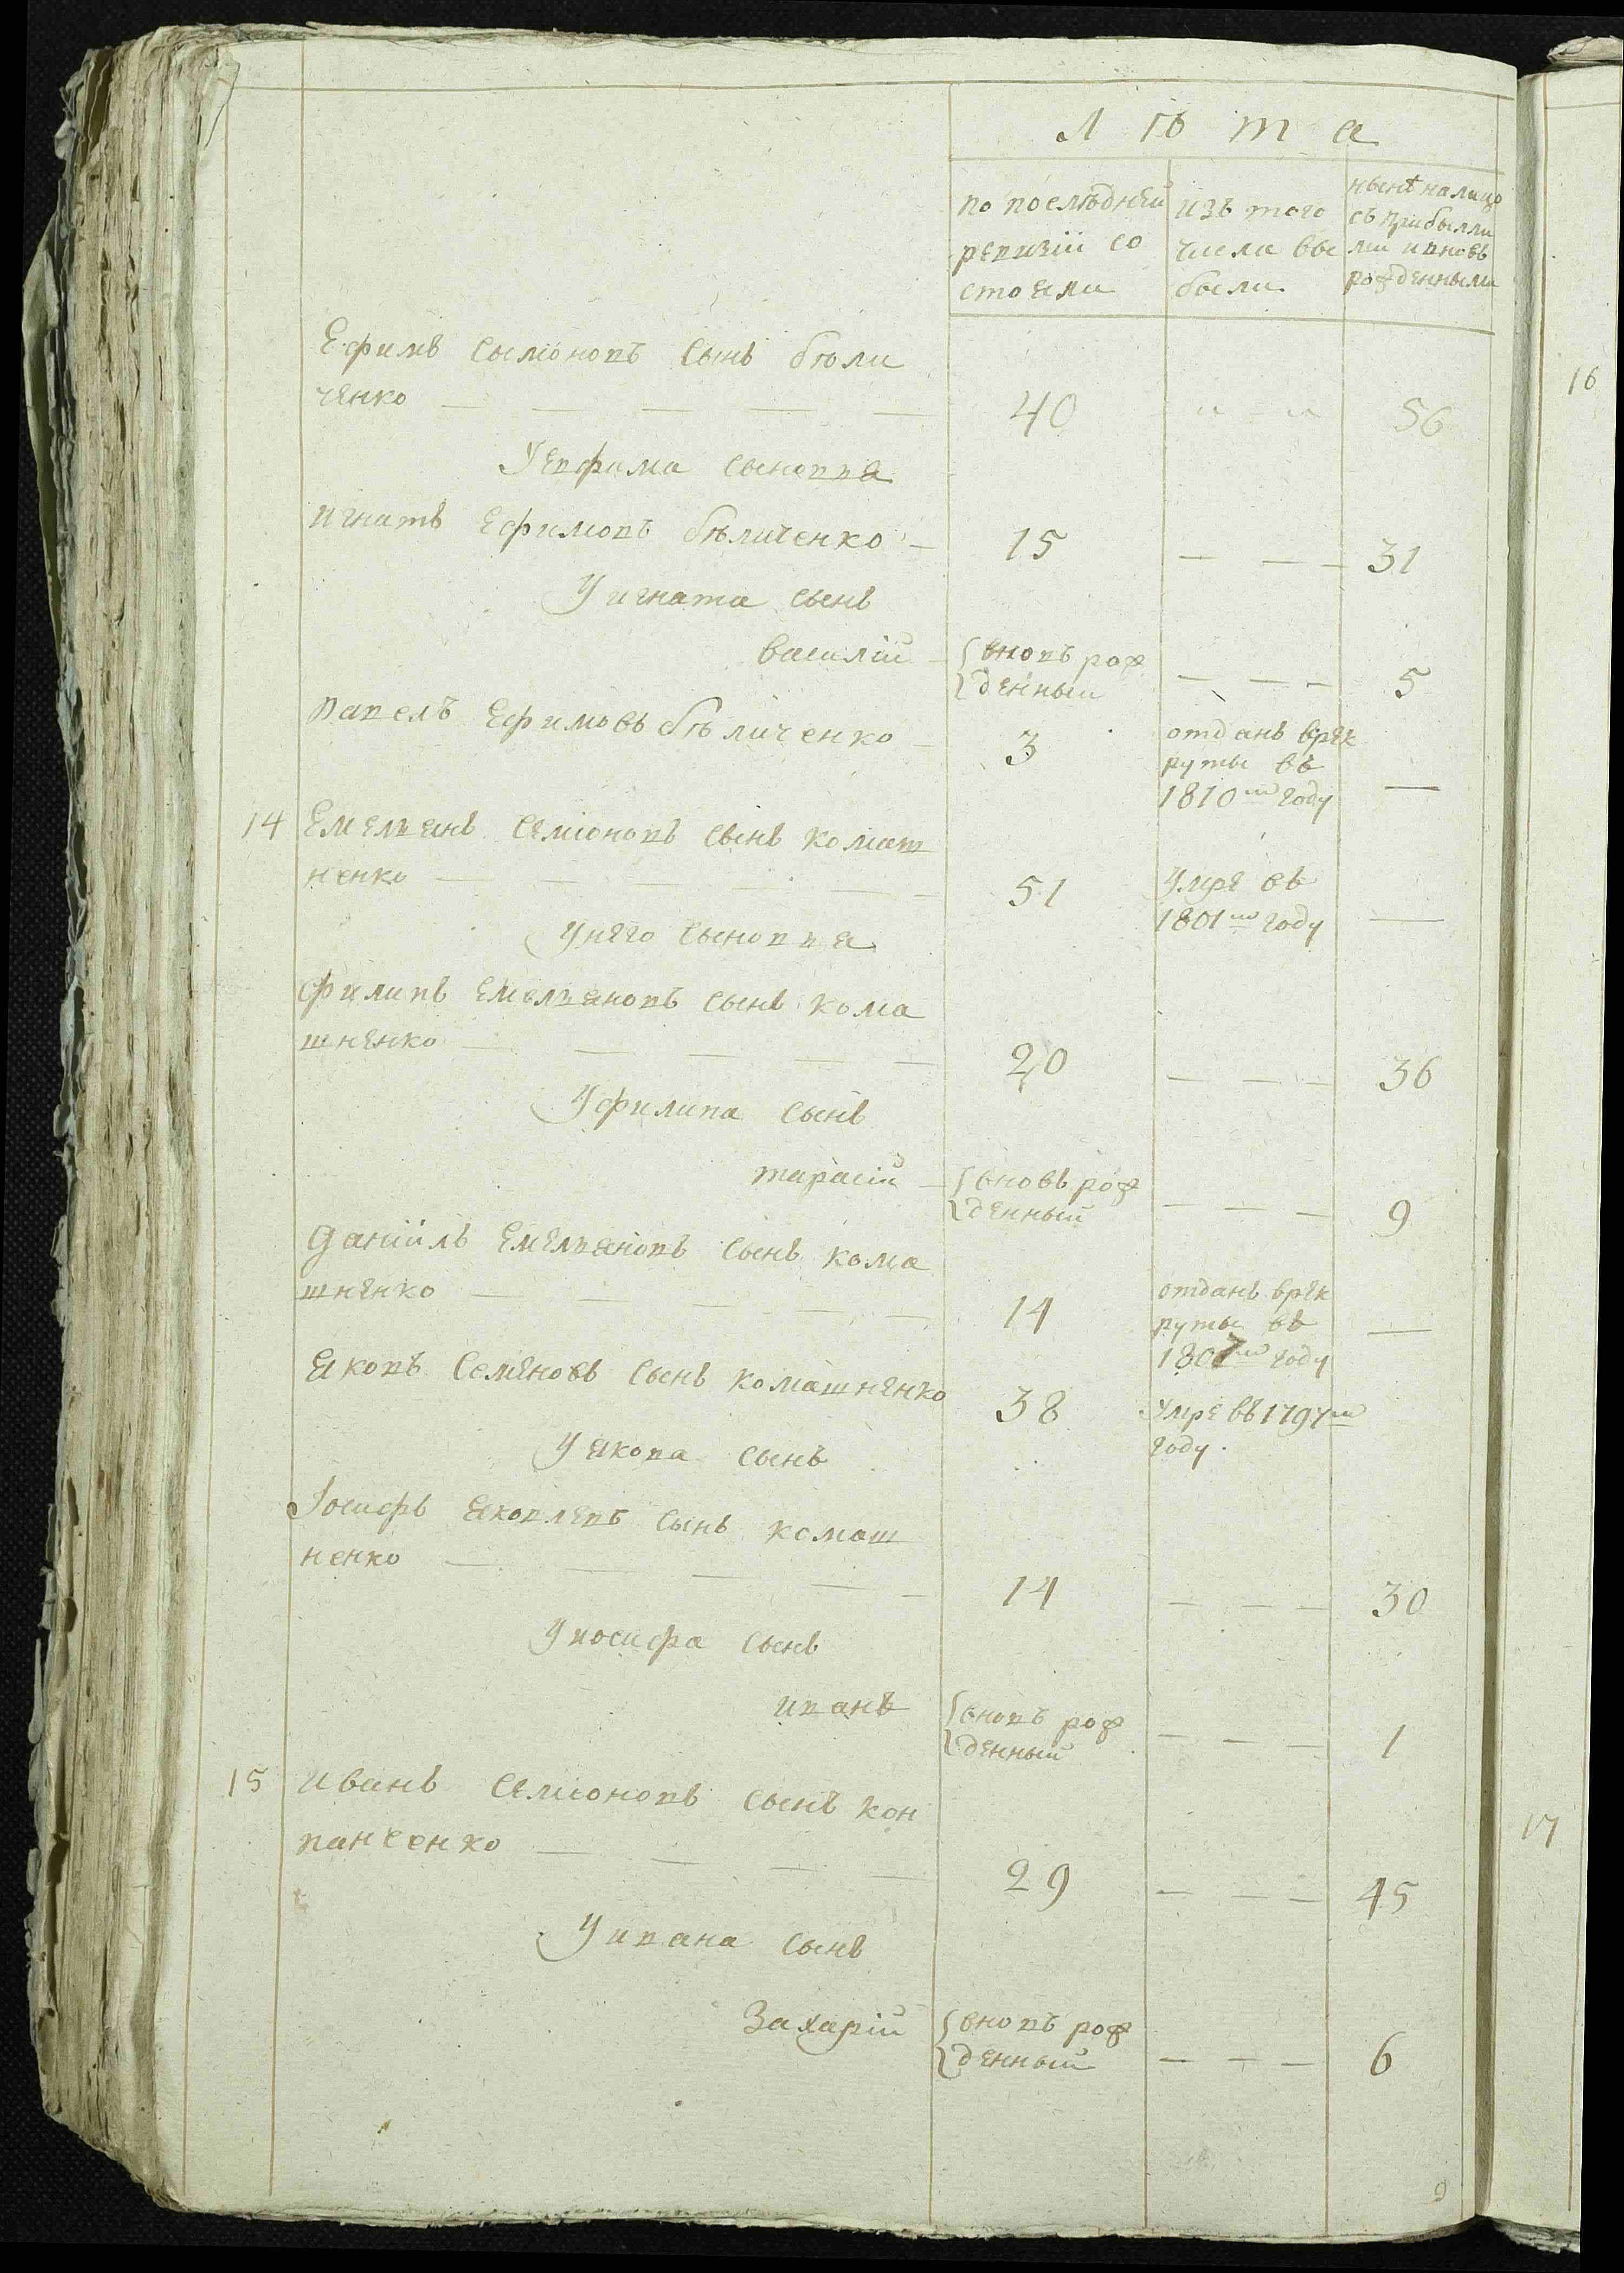 Лѣта
по послѣдней
ревизіи со
стояли
изъ того
числа вы
были
нынѣ налицо
съ прибылы
ми и вновь
рожденными
Ефимъ Сымоновъ сынъ бѣли
ченко — — — — — 40 " — " 56
У Евфима сыновья
Игнатъ Ефимовъ бѣличенко — 15 — — — 31
У игната сынъ
василій — вновъ рож
денный — — — 5
Павелъ Ефимовъ бѣличенко — 3 отданъ врек
руты въ
1810м году —
14 Емельянъ Семіоновъ сынъ комаш
ненко — — — — — 51 Умре въ
1801м году —
У него сыновья
Филипъ Емельяновъ сынъ кома
шненко — — — — — 20 — — — 36
У филипа сынъ
тарасій — вновь рож
денный — — — 9
Даніилъ Емельяновъ сынъ кома
шненко — — — — — 14 отданъ врек
руты въ
1807м году —
Яковъ Семеновъ сынъ комашненко 38 Умре въ 1797м
году.
У якова сынъ
Іосифъ яковлевъ сынъ комаш
ненко — — — — — 14 — — — 30
У иосифа сынъ
иванъ вновъ рож
денный — — — 1
15 иванъ Семіоновъ сынъ кон
панченко — — — — 29 — — — 45
У ивана сынъ
Захарій вновъ рож
денный — — — 6
9
16
17